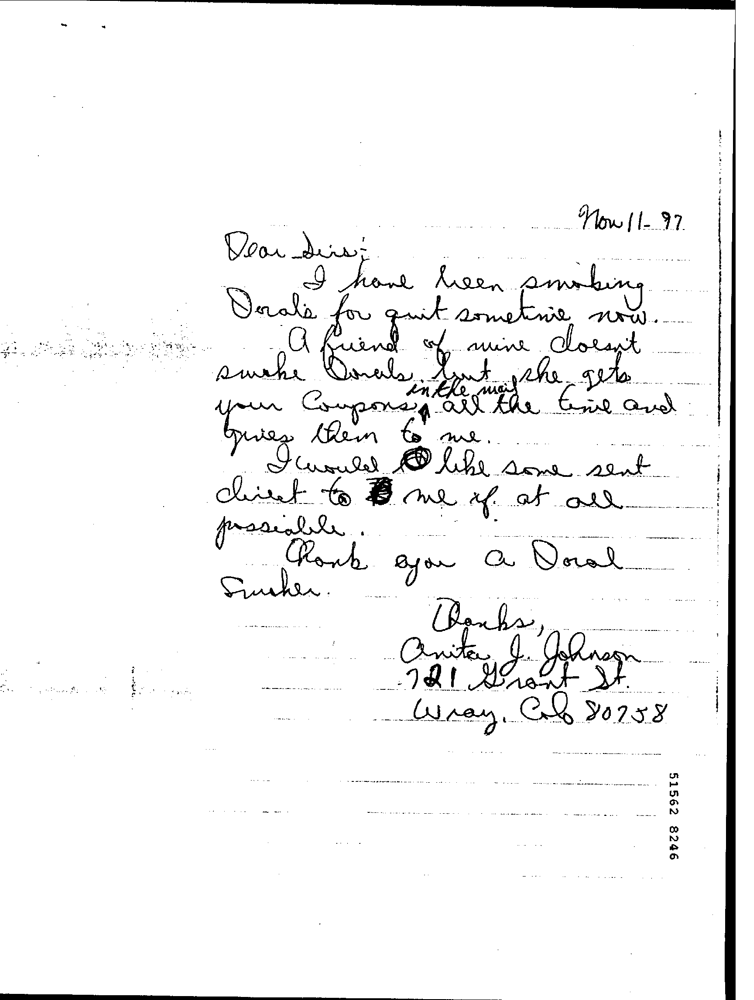 Nov 11-97
Dear Sirs:
I have been smoking
Dorals for quit sometime now.
A friend of mine doesn't
smoke Dorals but she gets
in the mail
your Coupons all the time and
gives them to me.
I would like some sent
direct to me if at all
possiable.
Thank you a Doral
Smoker.
Thanks,
Anita J. Johnson
721 Grant St.
Wray, Colo 80758
51562 8246